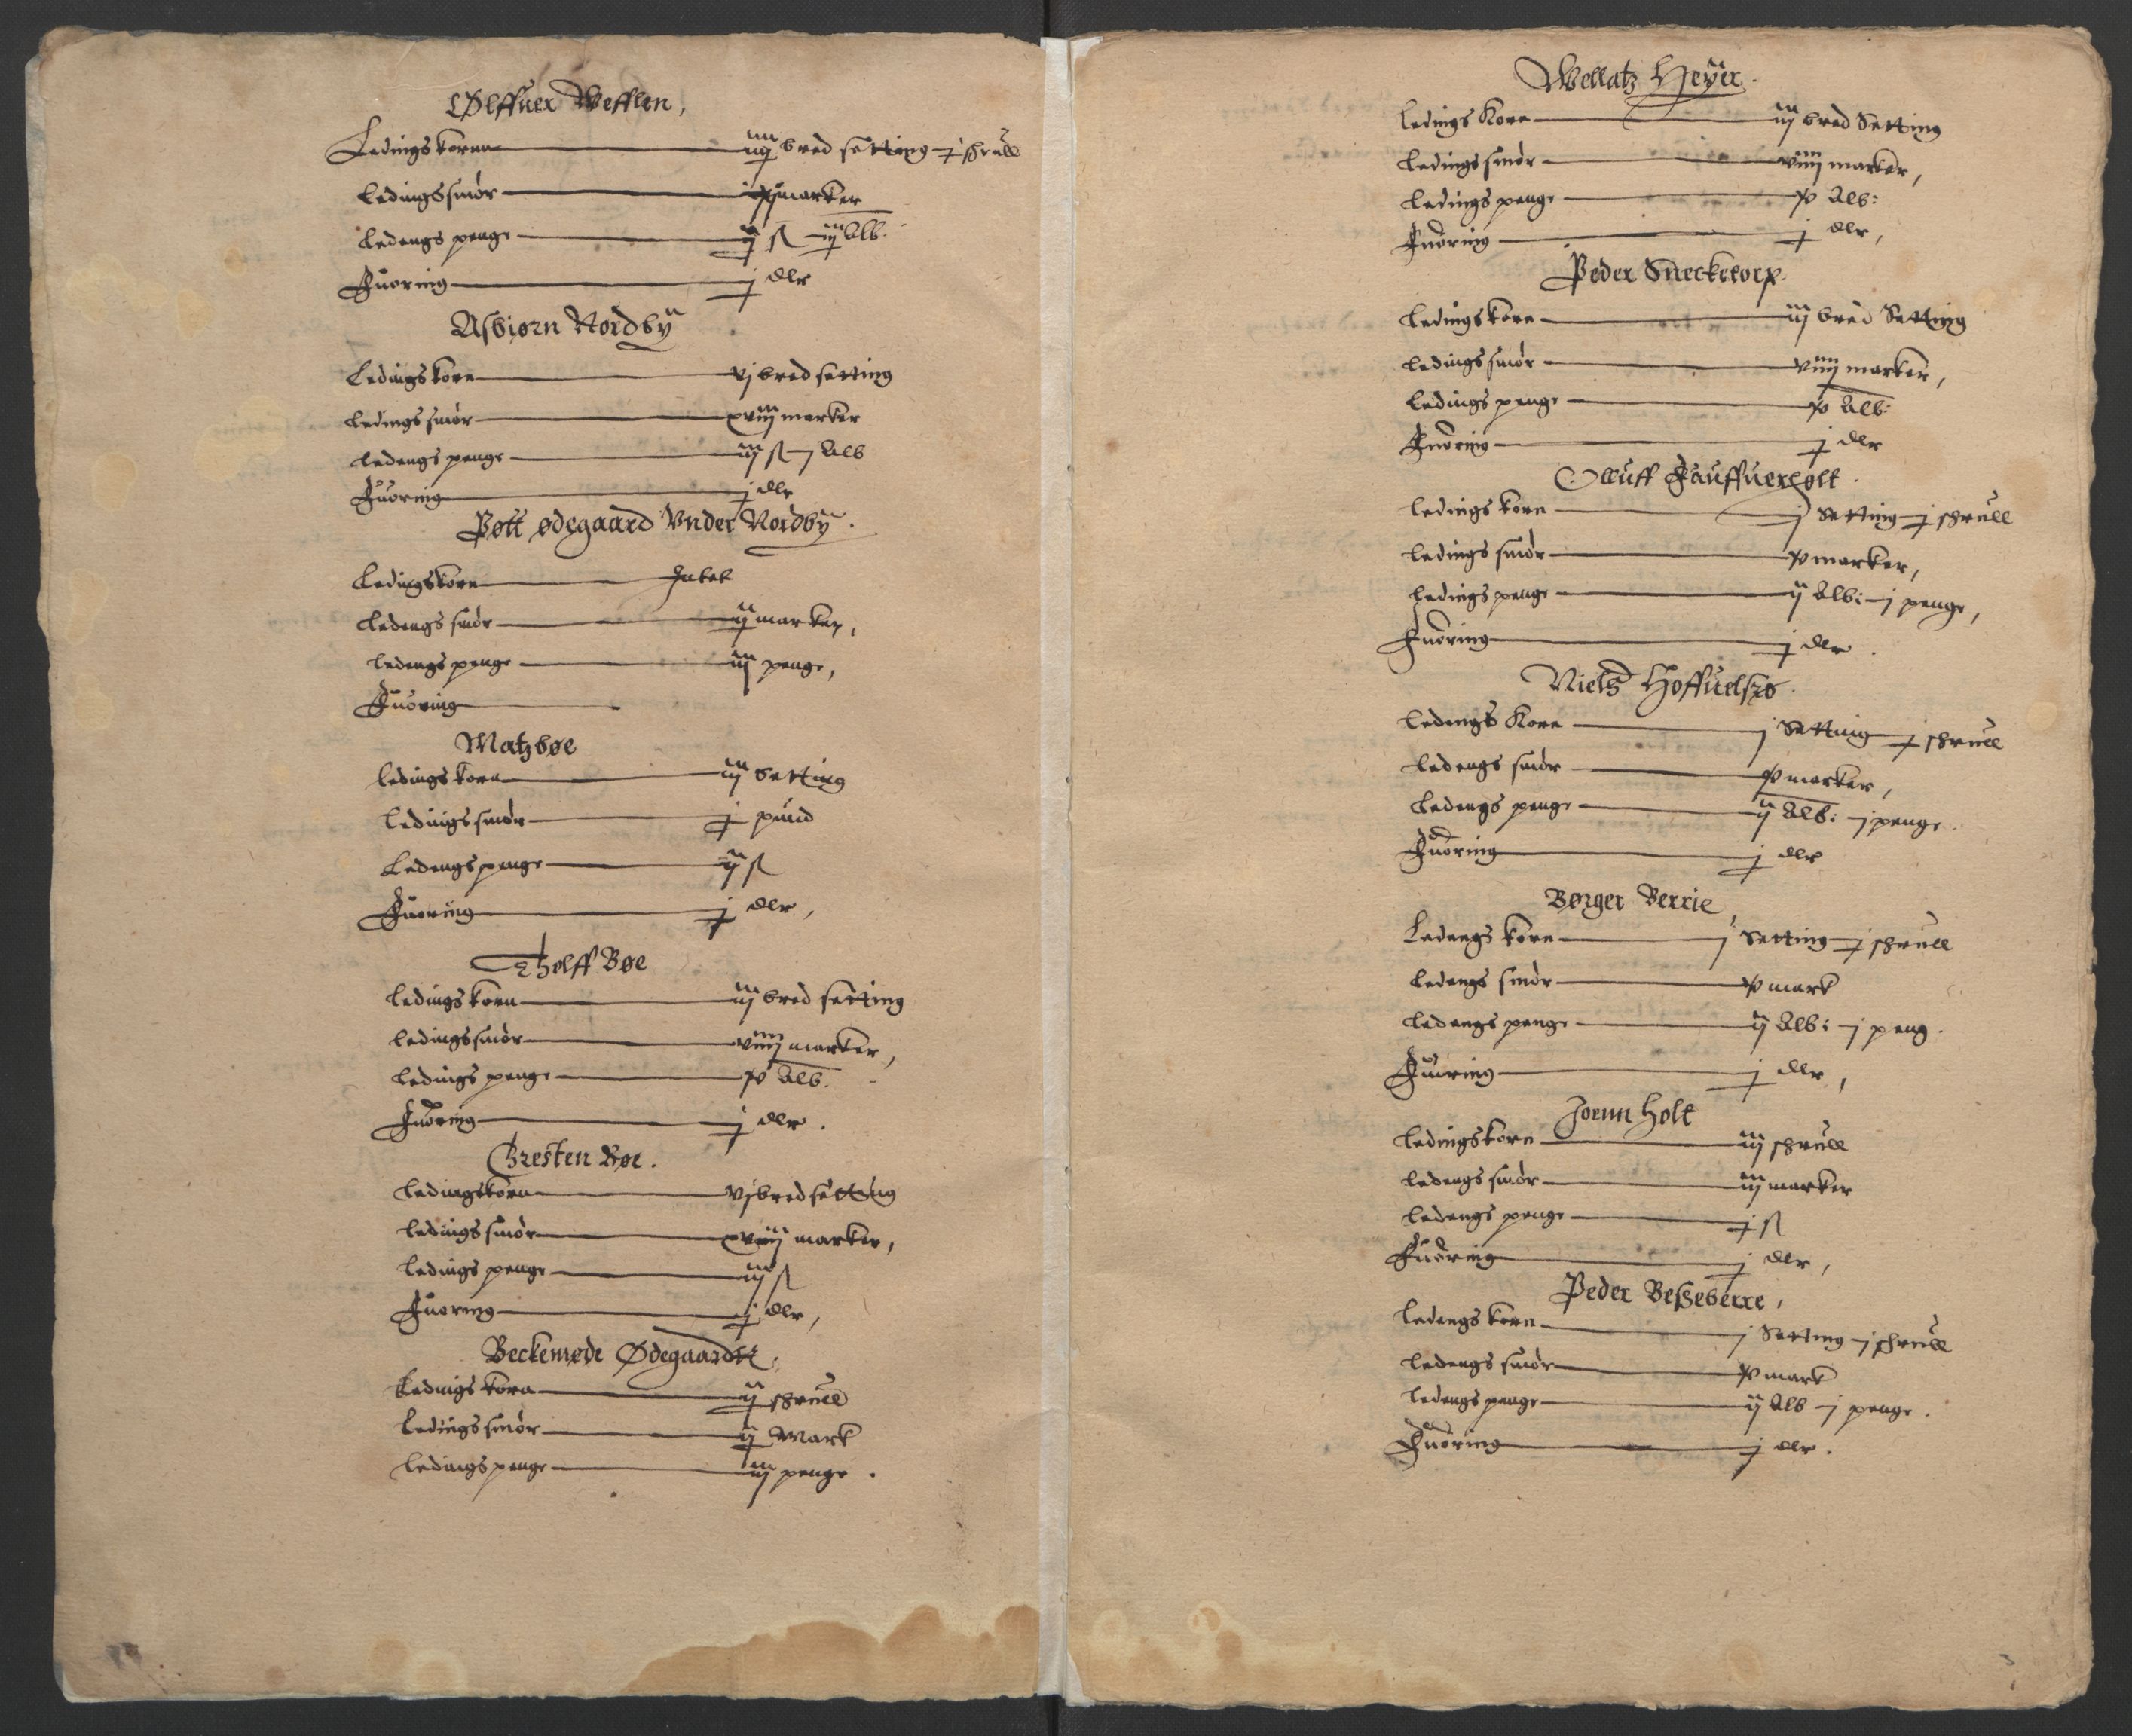 Ølffuer Wefflen,
Ledings kornn iiij bred setting j skrull
ledings smør marker
ledengs penge ij ß iij Alb.
Fuoring j dlr
Asbiørn Nordbÿ
Ledings korn vj bred setting
ledings smør xviij marker
ledengs penge iij ß j Alb
Fuoring j dlr
Pøtt ødegaard Vnder Nordbÿ.
Ledings korn Intet
ledengs smør ij marker,
ledengs penge iij penge,
Fuoring
Matz bøe
ledings korn iij Setting
ledings smør j pund
Ledengs penge ij ß
Fuoring j dlr,
Tholff Bøe
ledings korn iij bred setting
ledings smør viiij marker,
ledings penge v Alb.
Fuoring j dlr.
Christen Bøe.
ledings korn vj bred setting
ledings smør xviij marker,
ledings penge iij ß
Fuoring j dlr,
Beckemøde Ødegaardt.
Ledings korn ij skrull
ledings smør ij Mark
ledings penge iij penge.
Wellatz Heÿer.
ledings Korn iij bred Setting
ledings smør viiij marker,
ledings penge v Alb:
Fuoring j dlr,
Peder Snecketorp.
ledings korn iij bred Setting
ledings smør viiij marker,
ledings penge v Alb:
Fuoring j dlr
Olluff Fauffuerholt.
ledings korn j Setting j skrull
ledings smør v marker,
ledings penge ij Alb: j penge,
Fuoring j dlr.
Niels Hoffuelszø.
ledings Korn j Setting j skrull
ledengs smør v marker,
ledengs penge ij Alb: j penge.
Fuoring j dlr
Børger Berrie,
Ledengs korn j Setting j skrull
ledengs smør v mark
ledengs penge ij Alb: j peng.
Fuoring j dlr,
Joenn Holt
ledings korn iij skrull
ledengs smør iij marker
ledengs penge j ß
Fuoring j dlr,
Peder Beßeberre,
ledengs korn j Setting j skrull
ledengs smør v mark
ledengs penge ij Alb j penge.
Fuoring j dlr.